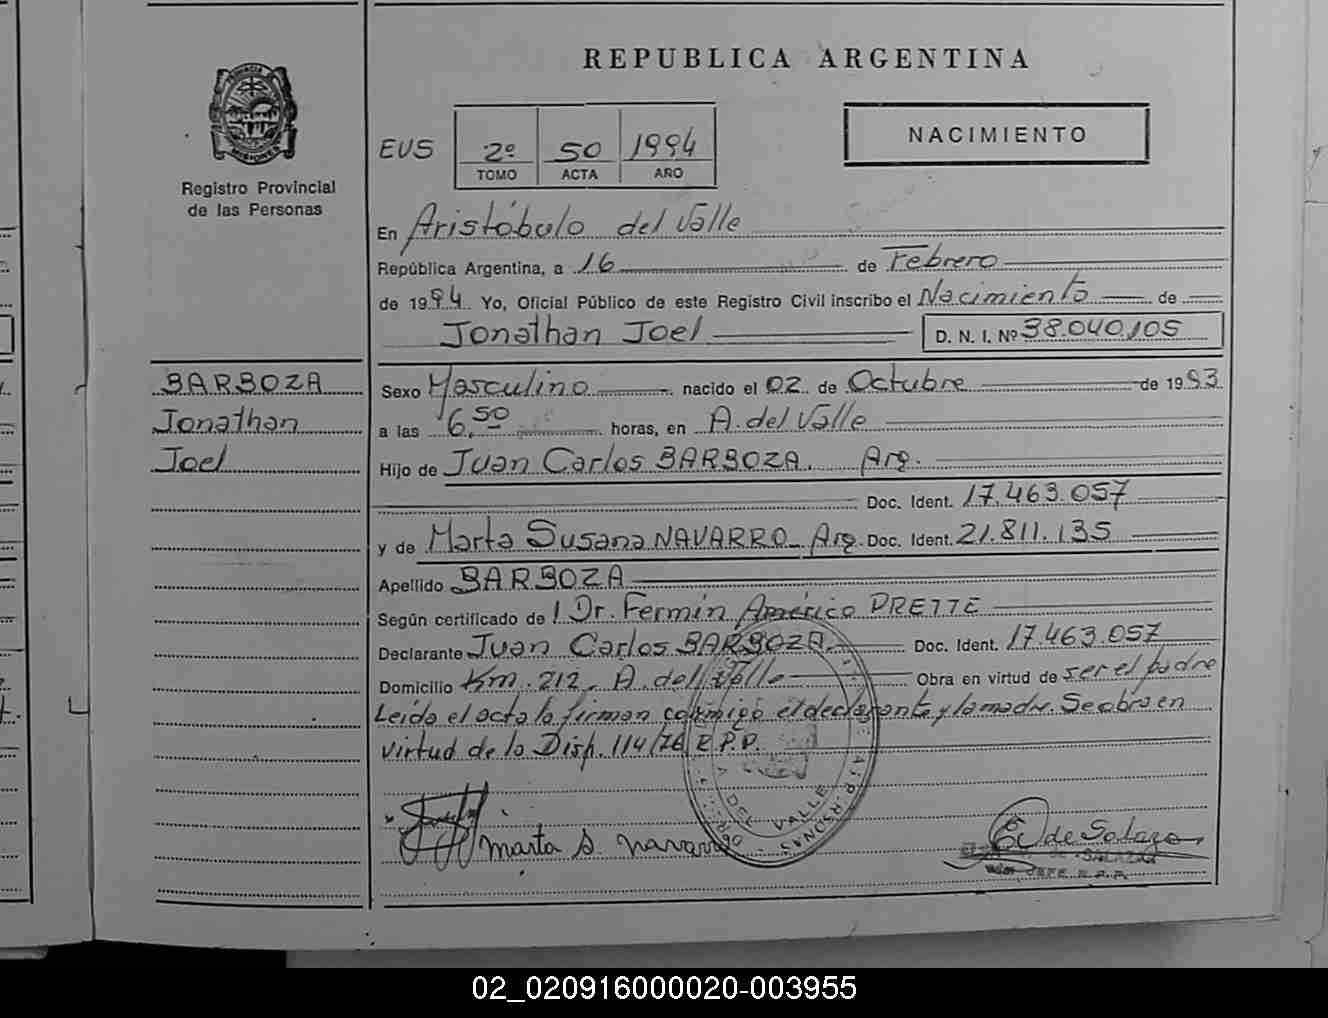 REPUBLICA ARGENTINA
PROVINCIA DE
MISIONES
Registro Provincial
de las Personas
EUS
2º 50 1994
TOMO ACTA AÑO
NACIMIENTO
En Aristóbulo del Valle
República Argentina, a 16 de Febrero
de 1994 Yo, Oficial Público de este Registro Civil inscribo el Nacimiento de
Jonathan Joel D. N. I. Nº 38.040.105
BARBOZA
Jonathan
Joel
Sexo Masculino nacido el 02 de Octubre de 1993
a las 6,50 horas, en A. del Valle
Hijo de Juan Carlos BARBOZA. Arg.
Doc. Ident. 17.463.057
y de Marta Susana NAVARRO Arg. Doc. Ident. 21.811.135
Apellido BARBOZA
Según certificado de Dr. Fermín Américo PRETTE
Declarante Juan Carlos BARBOZA. Doc. Ident. 17.463.057
Domicilio Km. 212. A. del Valle Obra en virtud de ser el padre
Leída el acta la firman conmigo el declarante y la madre. Se labra en
virtud de la Disp. 114/76 R.P.P.
DEL VALLE
Marta S. Navarro
E de Salazar
DE SALAZAR
JEFE R.P.P.
02_020916000020-003955